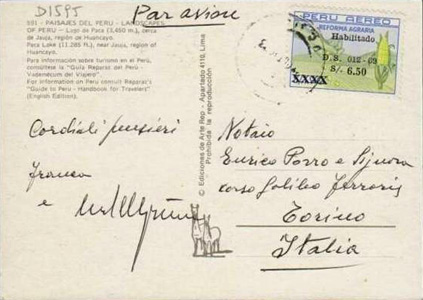 D1595
Par avion
591 - PAISAJES DEL PERU - LANDSCAPES
OF PERU - Lago de Paca (3,460 m.), cerca
de Jauja, región de Huancayo.
Paca Lake (11,285 ft.), near Jauja, region of
Huancayo.
Para información sobre turismo en el Perú,
consúltese la "Guía Reparaz del Perú -
Vademécum del Viajero"
For information on Peru consult Reparaz's
"Guide to Peru - Handbook for Travelers"
(English Edition).
© Ediciones de Arte Rep - Apartado 4110, Lima
Prohibida la reproducción
PERU AEREO
REFORMA AGRARIA
Habilitado
D.S. 012-69
S/. 6.50
XXXX
Cordiali pensieri
Franca
e
Notaio
Enrico Porro e Signora
corso Galileo Ferraris
Torino
Italia